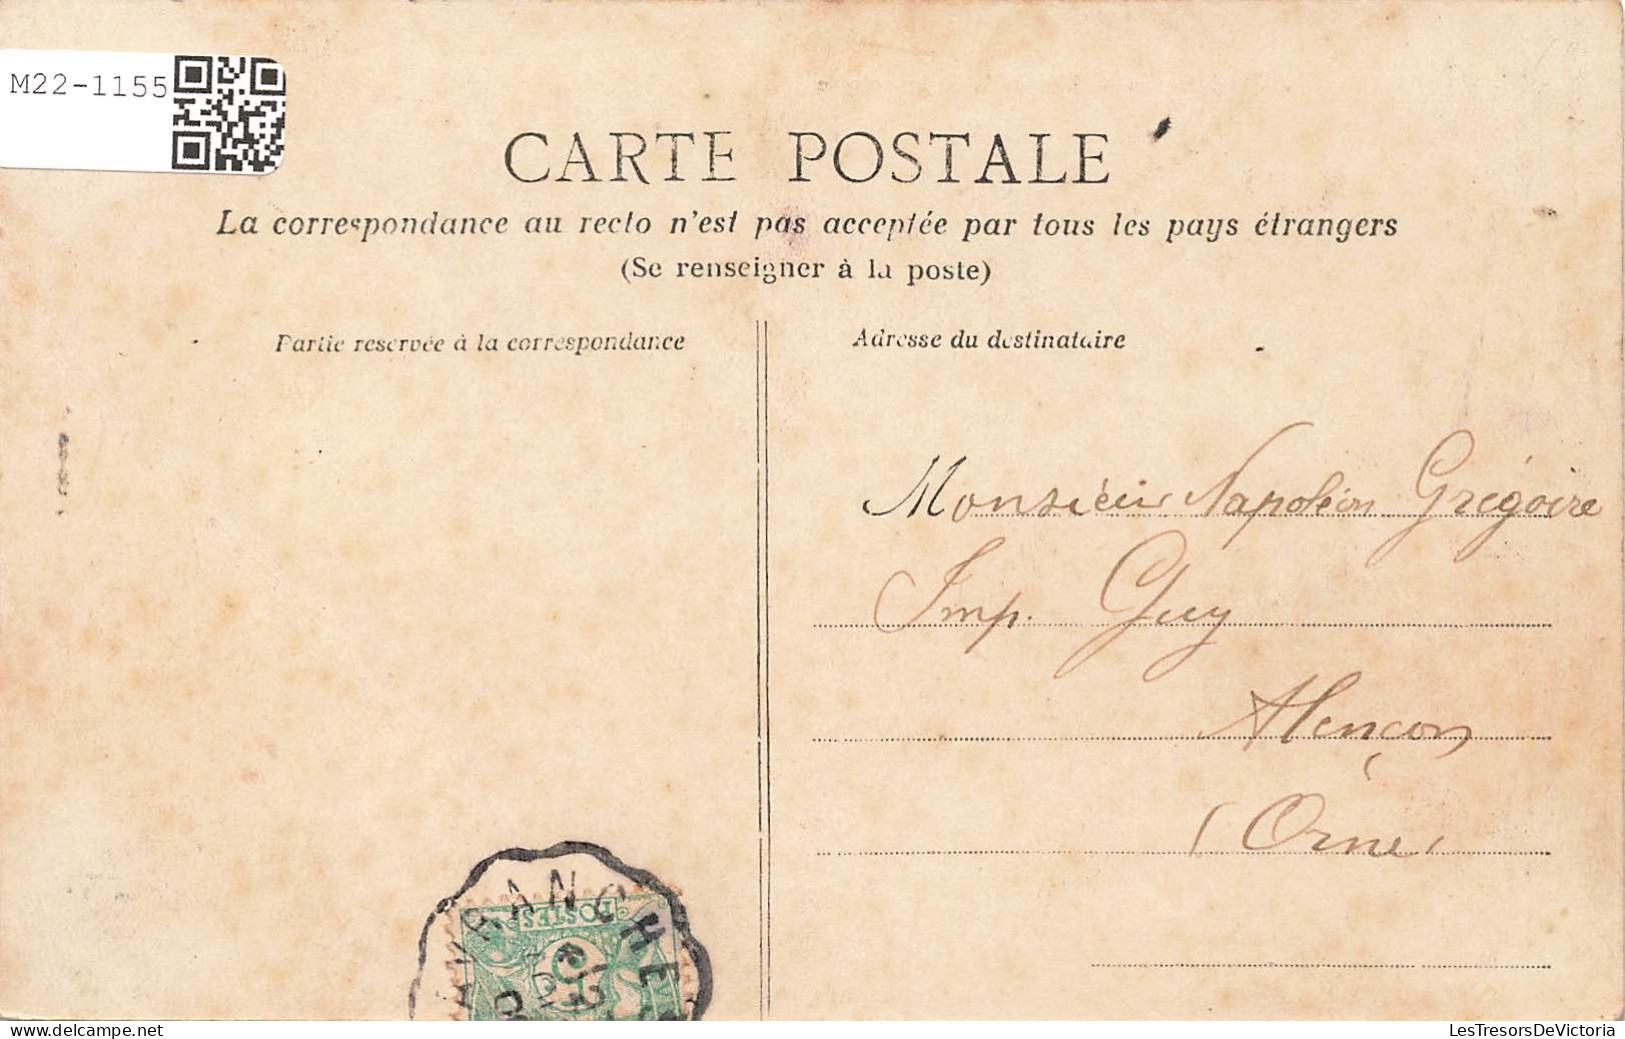 M22-1155
CARTE POSTALE
La correspondance au recto n'est pas acceptée par tous les pays étrangers
(Se renseigner à la poste)
Partie reservée à la correspondance
Adresse du destinataire
Monsieur Napoléon Grégoire
Imp. Guy
Alençon
(Orne)
AVRANCHE
POSTES
5
LesTresorsDeVictoria